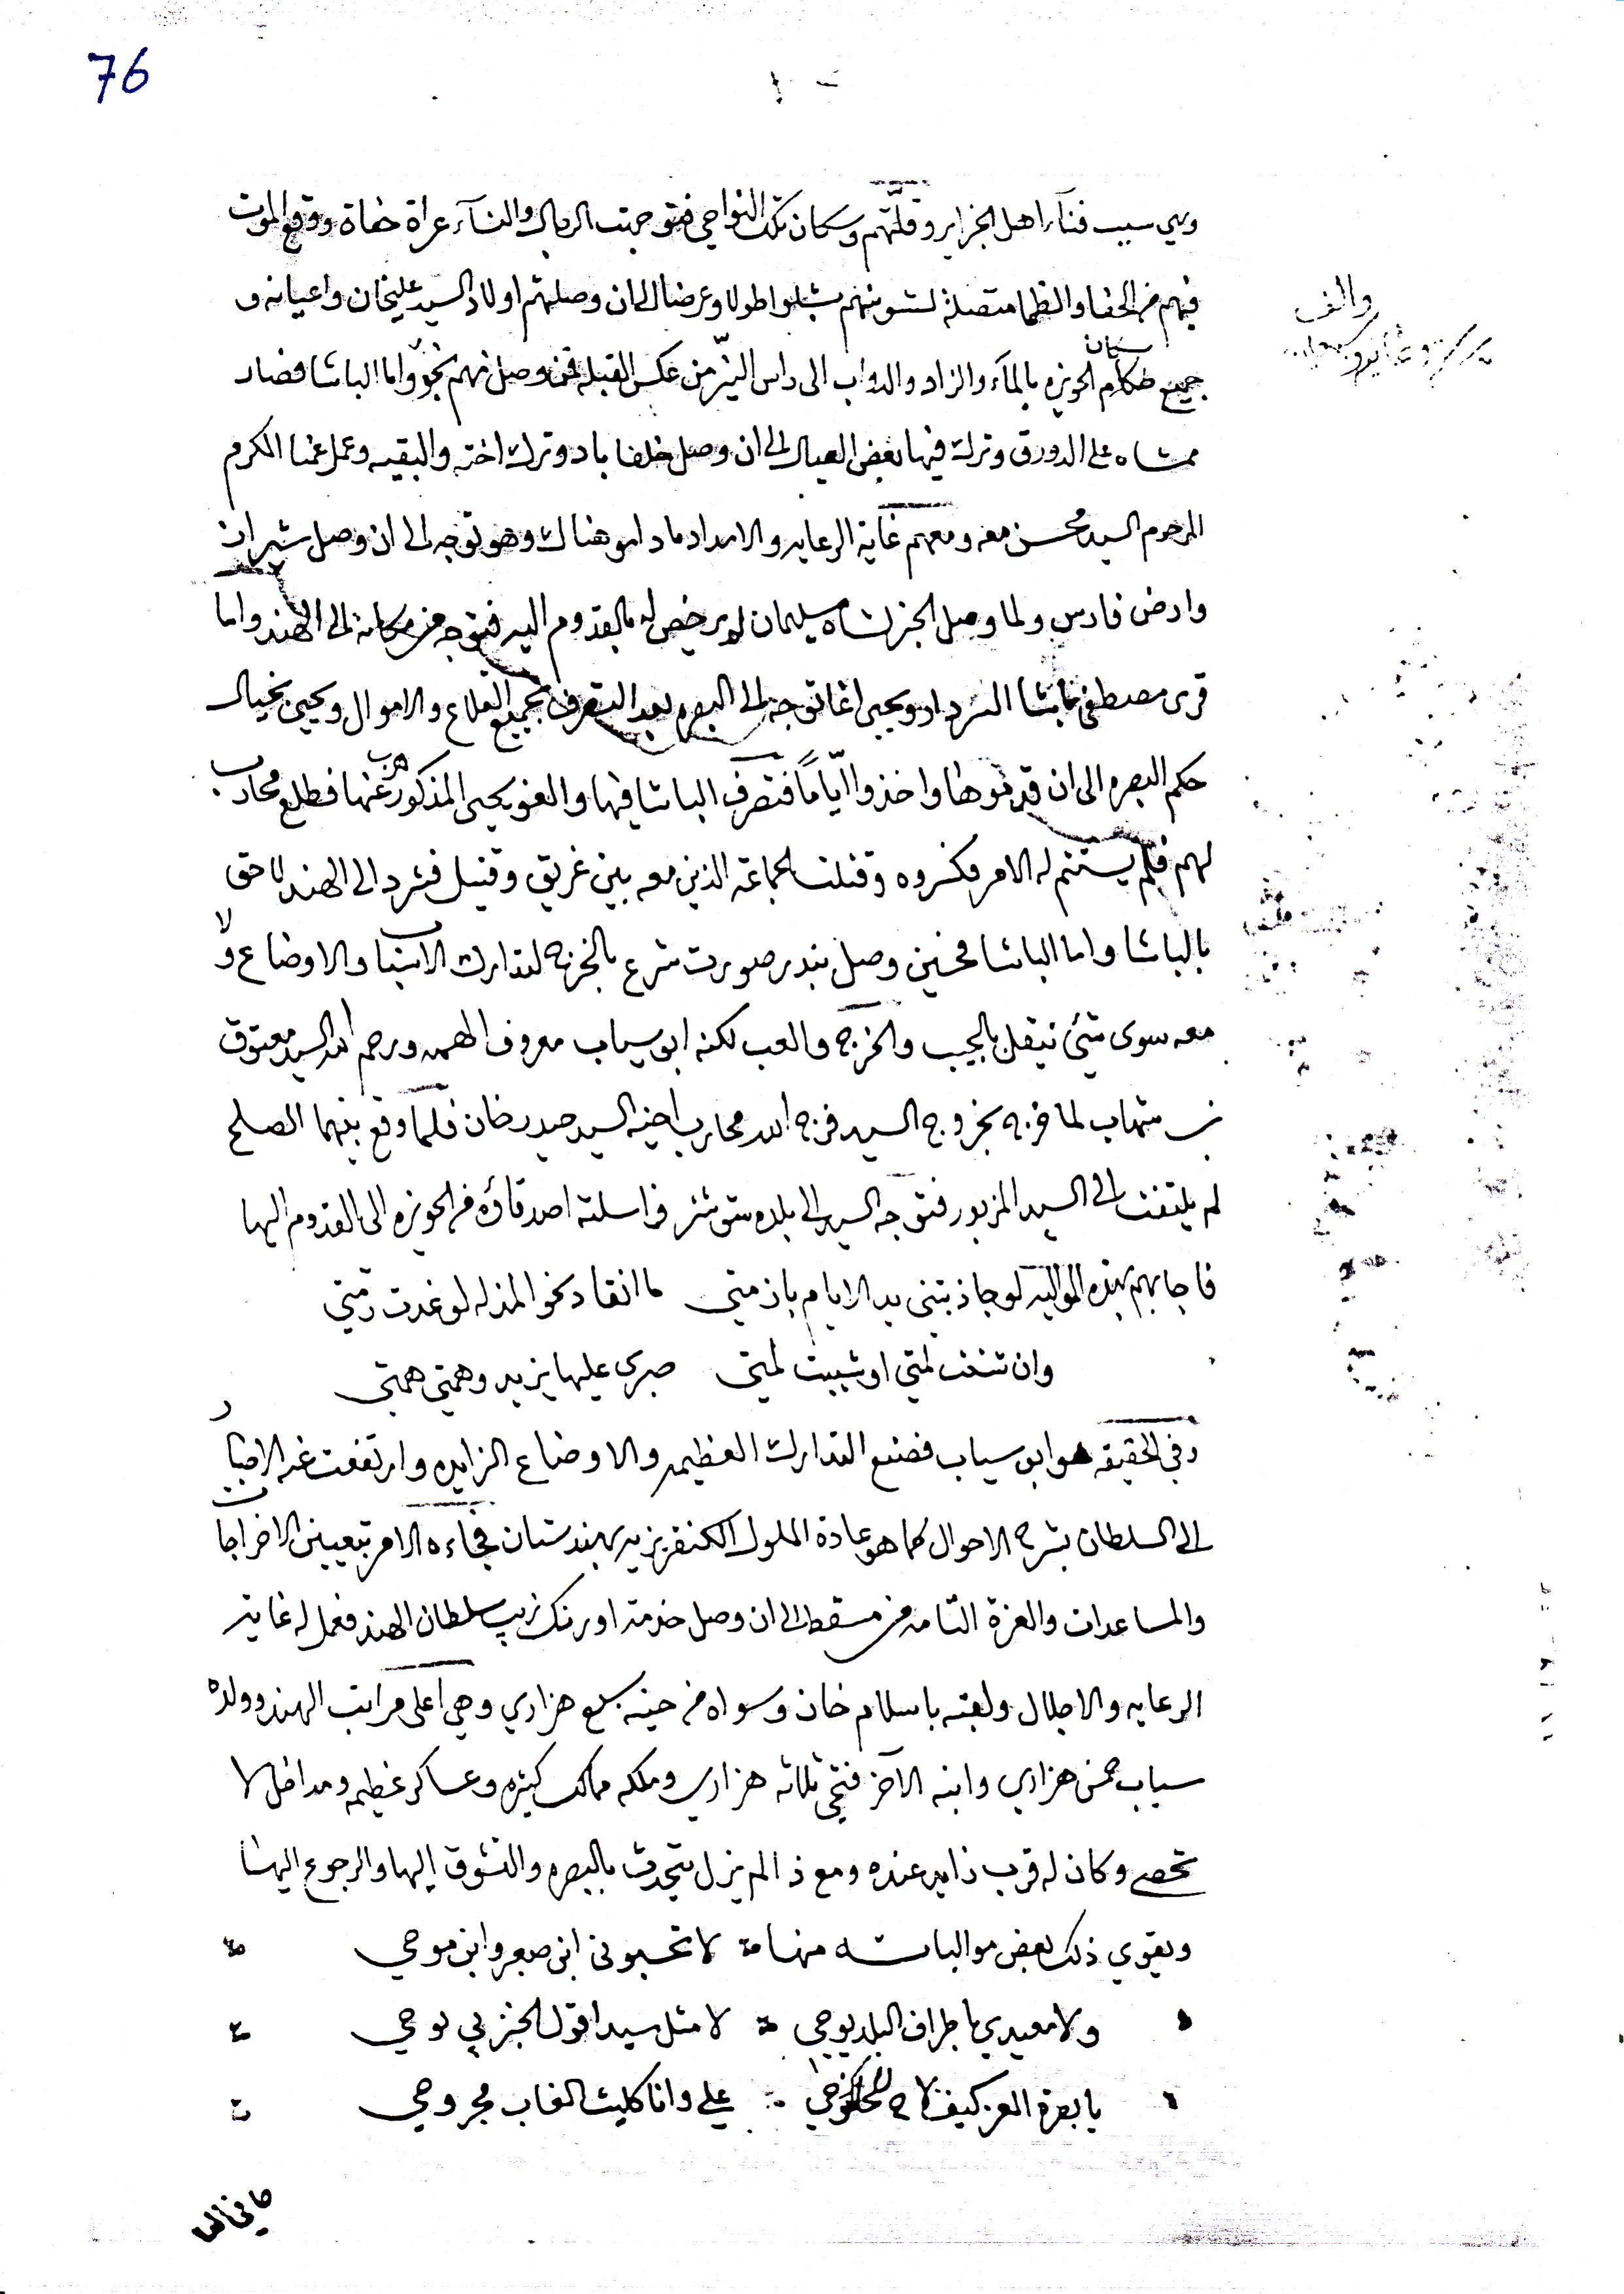 76
وهي سبب فنآء اهل الجزاير وقلّتهم وسكان تلك النواحي فتوجهت الرجال والنسآء عراة حفاة ووقع الموت
فيهم من الحفا والظما متصلة لشو منهم شبلوا طولا وعرضا الى ان وصلتهم اولاد السيد عليخان واعيانه و
جميع حكام سكان الحويزه بالمآء والزاد والدواب الى راس البئر من عكس القبله فمن وصل منهم نجى واما الباشا فصار
ممشاه على الدورق وترك فيها بعض العيال الى ان وصل خلفاباد وترك اخته والبقيه وعمل عمنا الكرم
المرحوم السيد محسن معه ومعهم غاية الرعايه والامداد ماداموا هناك وهو توجه الى ان وصل شيراز
وارض فارس ولما وصل الخبر لشاه سليمان لم يرخص له بالقدوم اليه فتوجه من مكانه الى الهند واما
قرى مصطفى باشا السردار ويحيى اغا توجه الى البصره بعد التصرف بجميع القلاع والاموال ويحيى بخيال
حكم البصره الى ان قدموها واخذوا ايّاماً فتصرف الباشا فيها والغو يحيى المذكور هرب عنها فطلع محارب
لهم فلم يستتم له الامر فكسروه وقتلت الجماعه الذين معه بين غريق وقتيل فشرد الى الهند لاحق
بالباشا واما الباشا فحين وصل بندر صورت شرع بالخرج لتدارك الاسباب والاوضاع ولا
معه سوى شئ ينقل بالجيب والخرج والعب لكنه ابو سياب معروف الهمه ورحم الله السيد معتوق
بن شهاب لما خرج بخروج السيد فرج الله محارب اخيه السيد حيدر خان فلما وقع بينهما الصلح
لم يلتفت الى السيد المزبور فتوجه السيد الى بلده شوشتر فراسلته اصدقاؤه من الحويزه الى القدوم اليها
فاجابهم بهذه المواليه لو جاذبتني يد الايام بازمتي ما انقاد نحو المذله لو غدت رمّتي
وان شعثت لمتي او شيبت لمتي صبري عليها يزيد وهمتي همتي
وفي الحقيقه هو ابو سياب فصنع التدارك العظيمه والاوضاع الزايده وارتفعت عنه الاخبار
الى السلطان بشرح الاحوال كما هو عادة الملوك الكنقريزيه بهندستان فجاءه الامر بتعيين الاخراجات
والمساعدات والعزة التامه من مسقط الى ان وصل خدمة اورنك زيب سلطان الهند فعمل له غاية
الرعايه والاجلال ولقبه باسلام خان وسواه من حينه سبع هزاري وهي اعلى مراتب الهند وولده
سياب خمس هزاري وابنه الآخر فتحي ثلاثه هزاري وملكه ممالك كثيره وعساكر عظيمه ومداخل لا
تحصى وكان له قرب زايد عنده ومع ذا لم يزل يتحدث بالبصره والتشوق اليها والرجوع اليها
ويقوي ذلك بعض موالياته منها لا تحسبوني ابن صبر وابن موحي
ولا معيدي باطراف البلد يوحي لا مثل سيد اقول الخبر بي نوحي
يا بصرة العز كيف علي وانا كليث الغاب مجروحي
والف